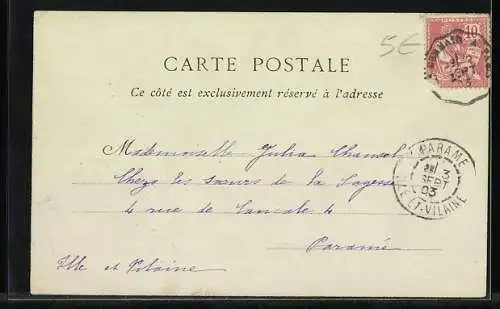 5€
10
CARTE POSTALE
Ce côté est exclusivement réservé à l'adresse
Mademoiselle Julia
Chez les sœurs de la Sagesse
4 rue de Cancale 4
Paramé
Ille et Vilaine
PARAME
3
SEPT
03
ILLE-ET-VILAINE